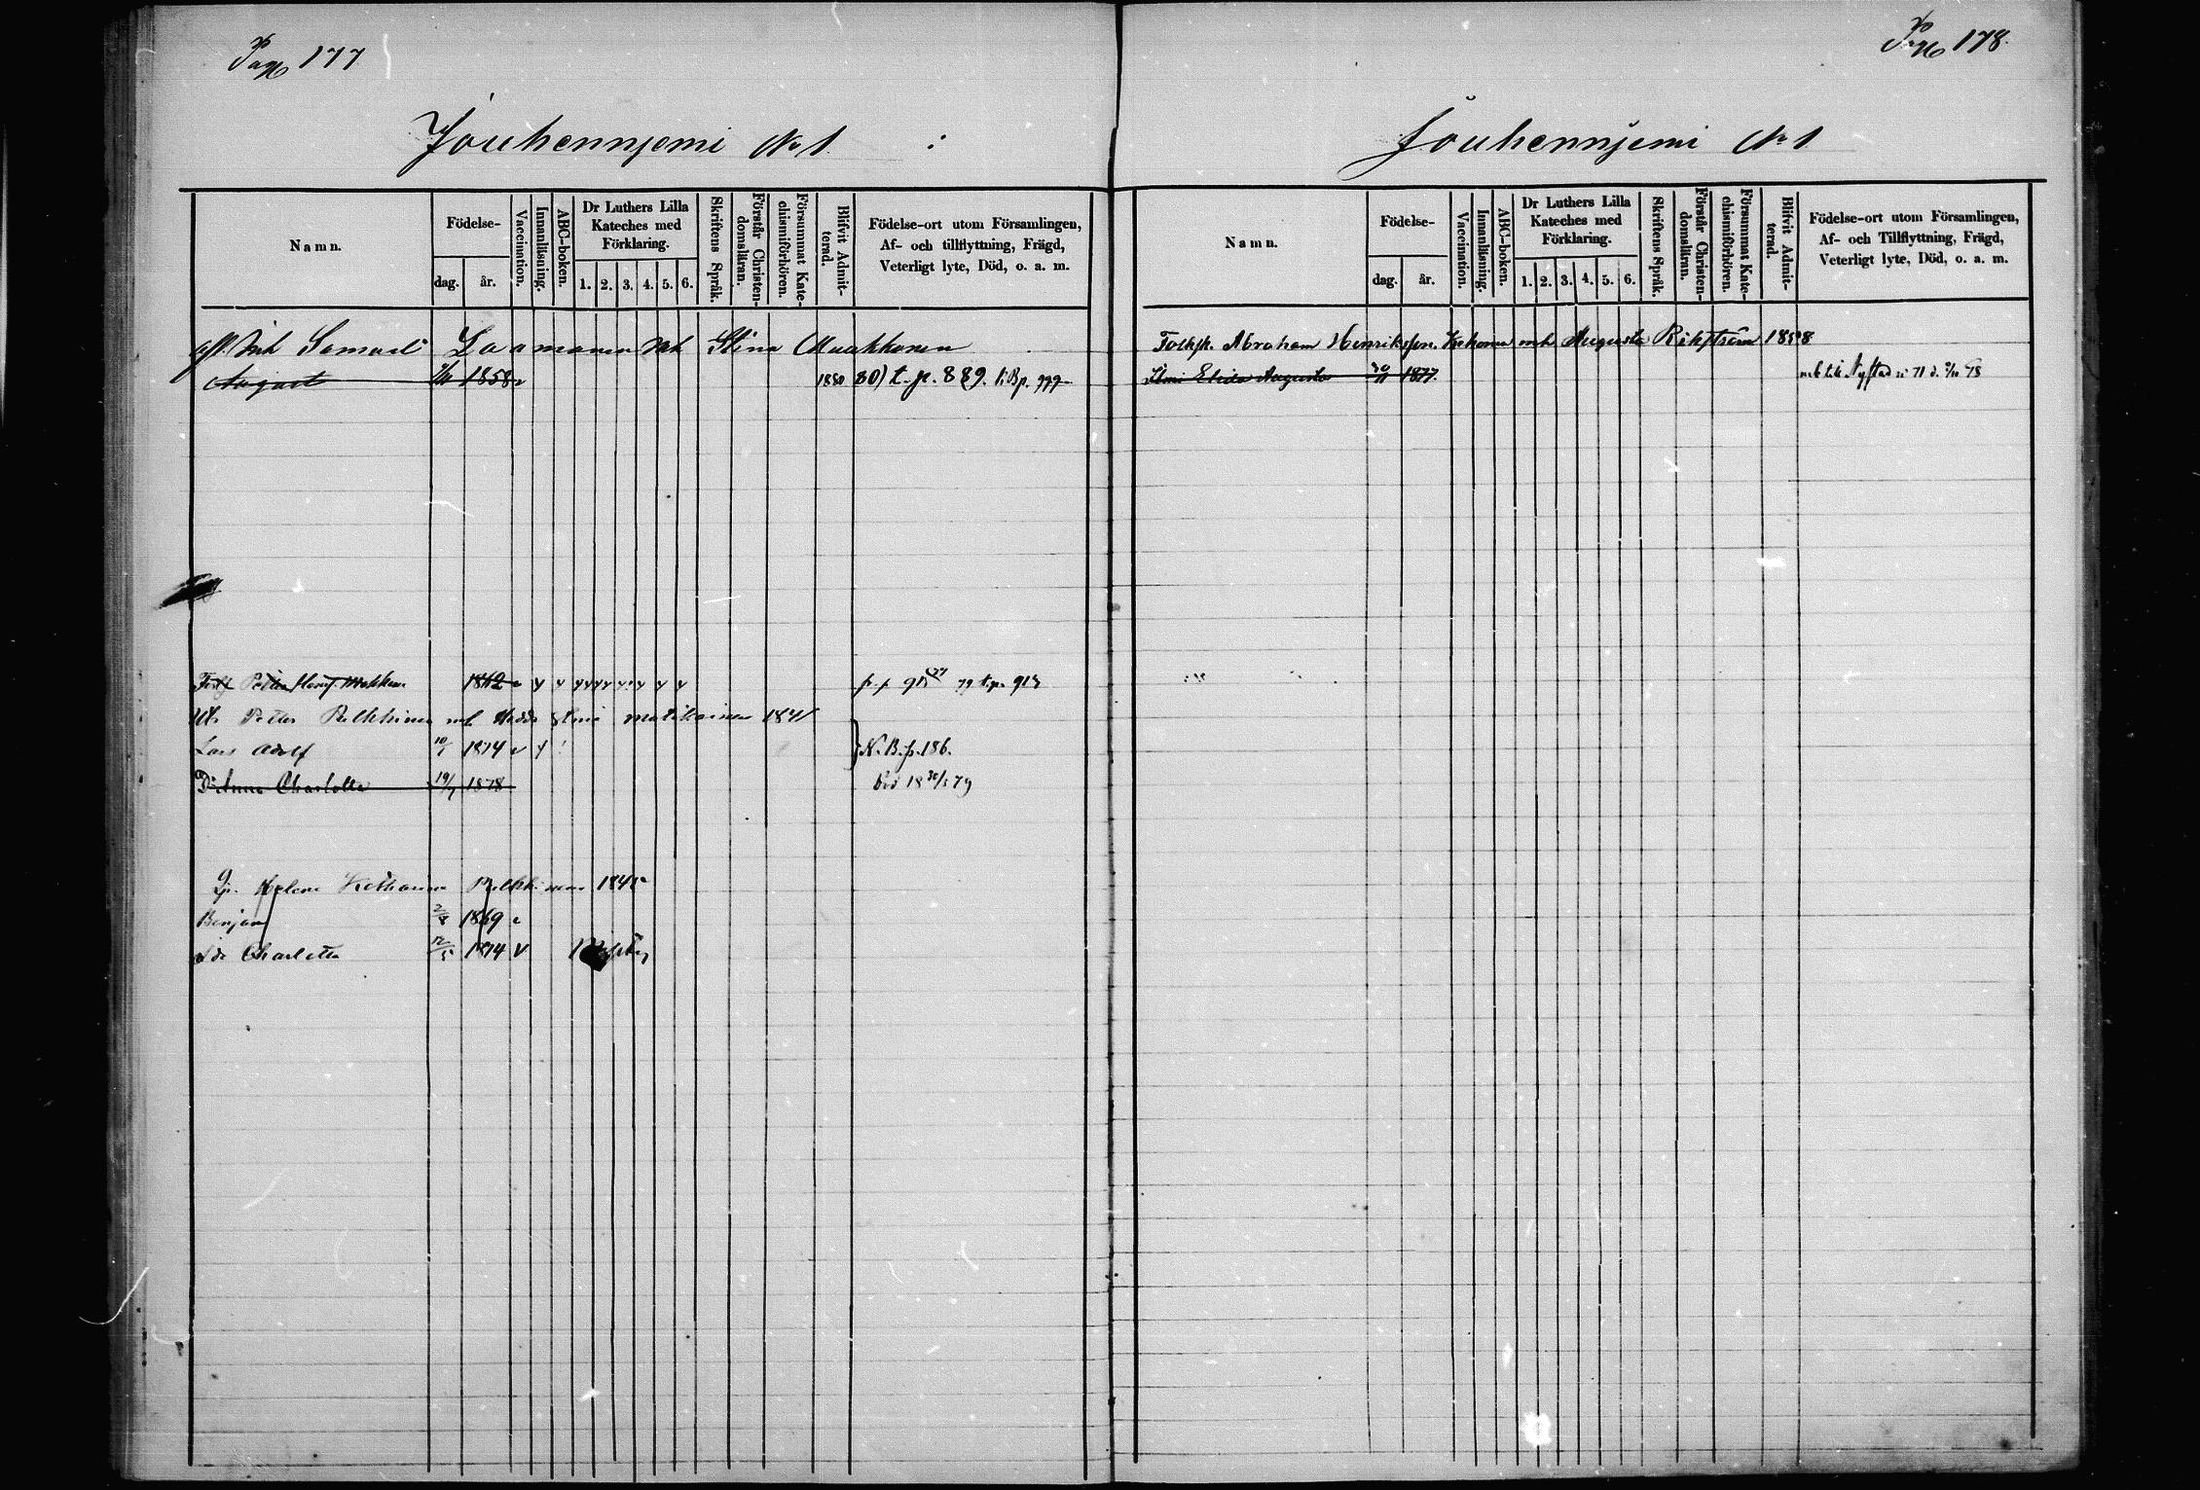 Pag 177
Jouhennjemi No 1.
Namn.
Födelse-
dag.
år.
Vaccination.
Innanläsning.
ABC-boken.
Dr Luthers Lilla
Kateches med
Förklaring.
1. 2. 3. 4. 5. 6.
Skriftens Språk.
Förstår Christen-
domsläran.
Försummat Kate-
chismiförhören.
Blifvit Admit-
terad.
Födelse-ort utom Församlingen,
Af- och tillflyttning, Frägd,
Veterligt lyte, Död, o. a. m.
Samuel Laamanen Stina Muukkonen
August 1858 v 1880 80) t. p. 889.
Petter 1862 v p. p 79 t. p. 915
Petter Pulkkinen mh Hedda 1841
Lars Adolf 10/1 1874 v y N. B. p. 186.
Anna Charlotta 19/7 1878 Död 18 30/5 79
Helena Kethonen Pulkkinen
Benjam 1869 v
Ida Charlotta 1874 v
Pag 178.
Jouhennjemi No 1
Namn.
Födelse-
dag.
år.
Vaccination.
Innanläsning.
ABC-boken.
Dr Luthers Lilla
Kateches med
Förklaring.
1. 2. 3. 4. 5. 6.
Skriftens Språk.
Förstår Christen-
domsläran.
Försummat Kate-
chismiförhören.
Blifvit Admit-
terad.
Födelse-ort utom Församlingen,
Af- och Tillflyttning, Frägd,
Veterligt lyte, Död, o. a. m.
Abraham Henriksson mh Augusta 1858
Ilmi Elida Augusta 1877. Nystad